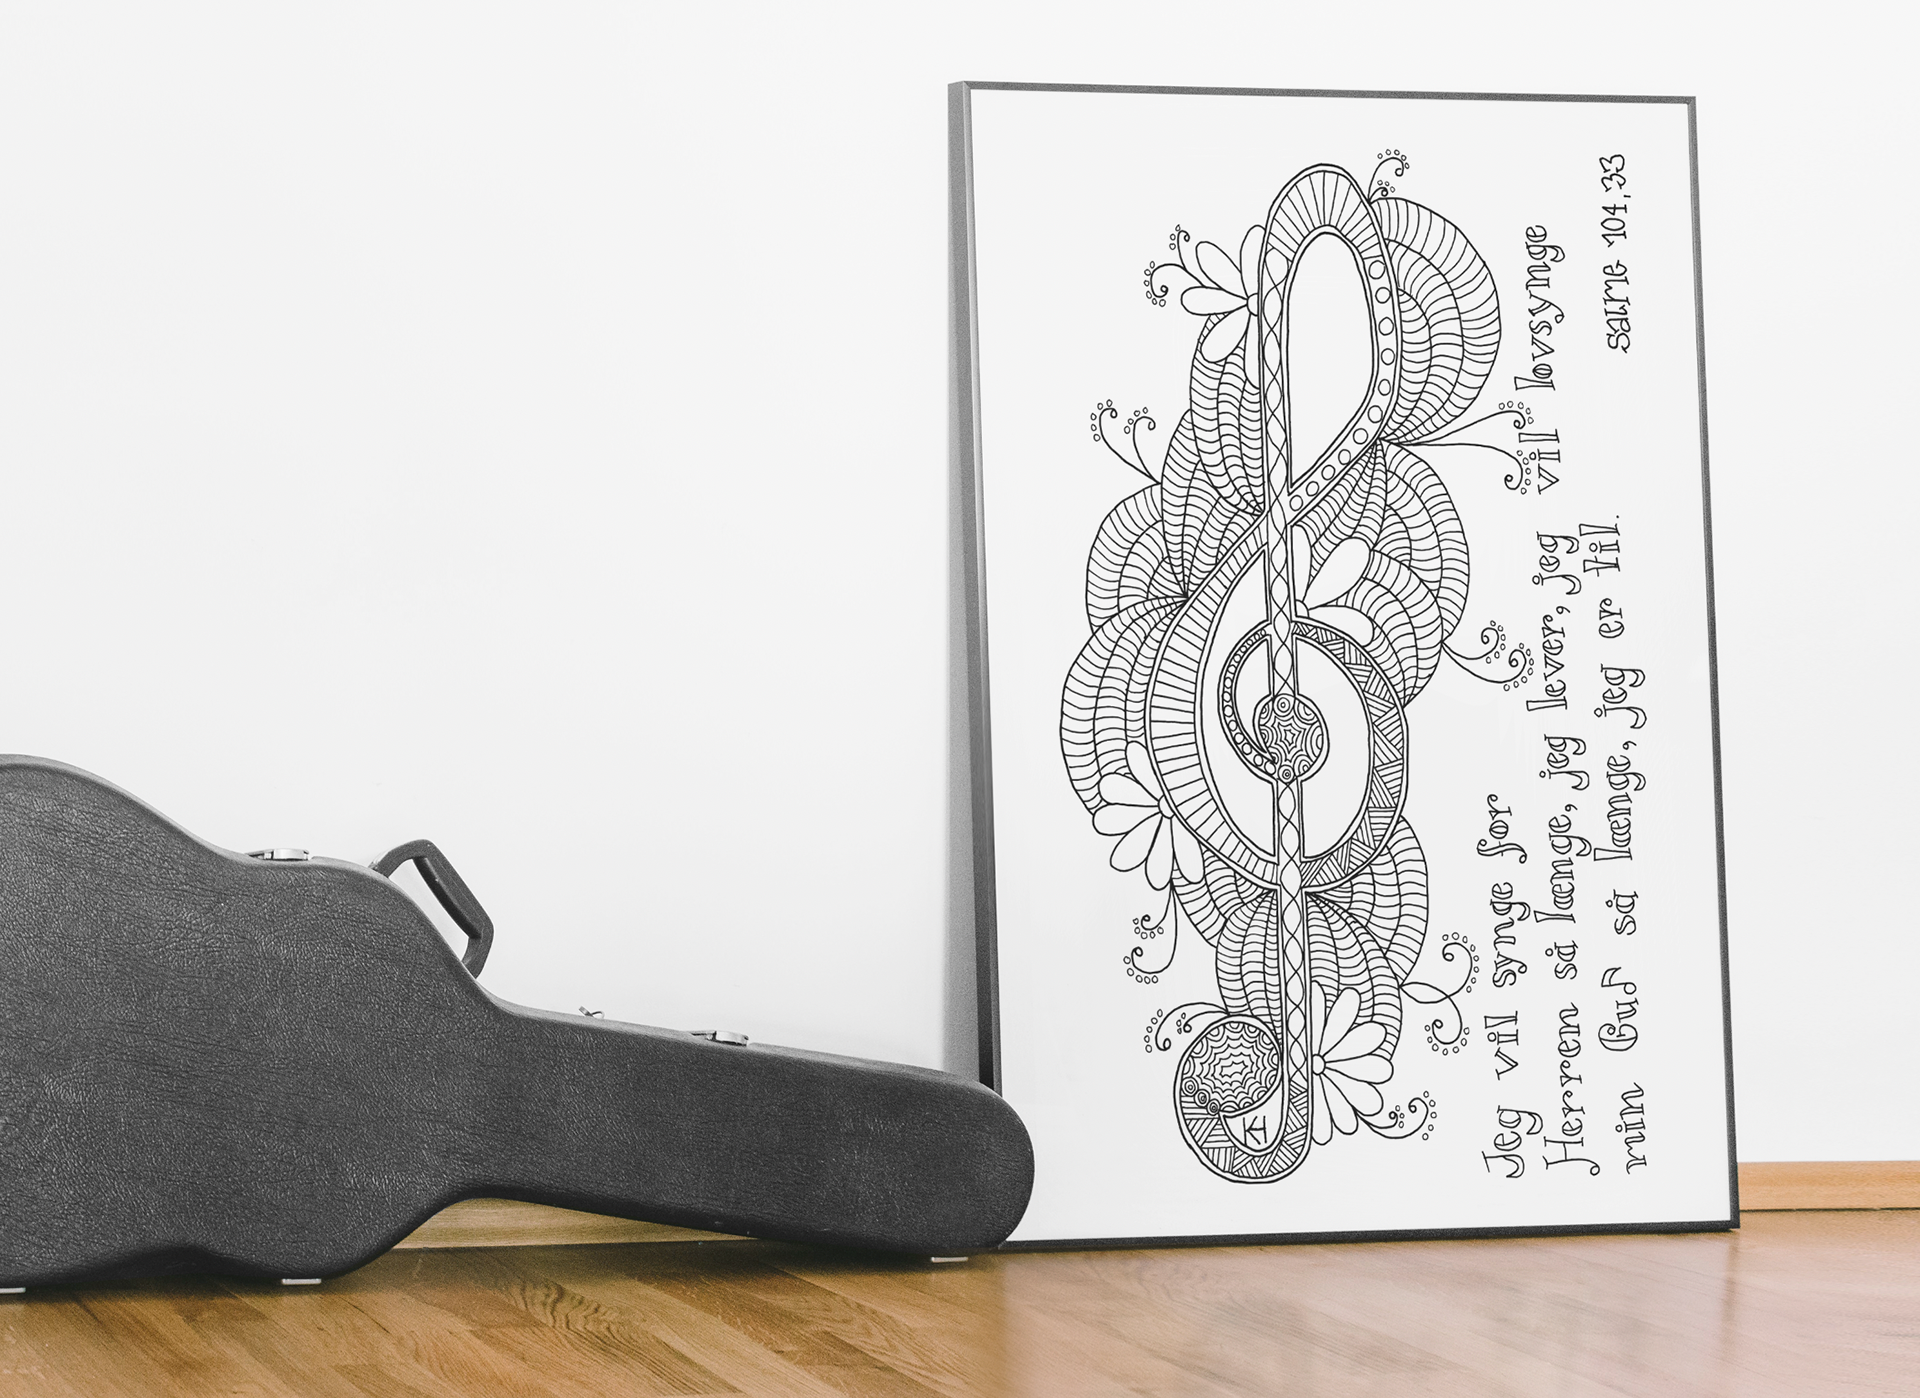 Jeg vil synge for
Herren så længe, jeg lever, jeg vil lovsynge
min Gud så længe, jeg er til.
Salme 104,33